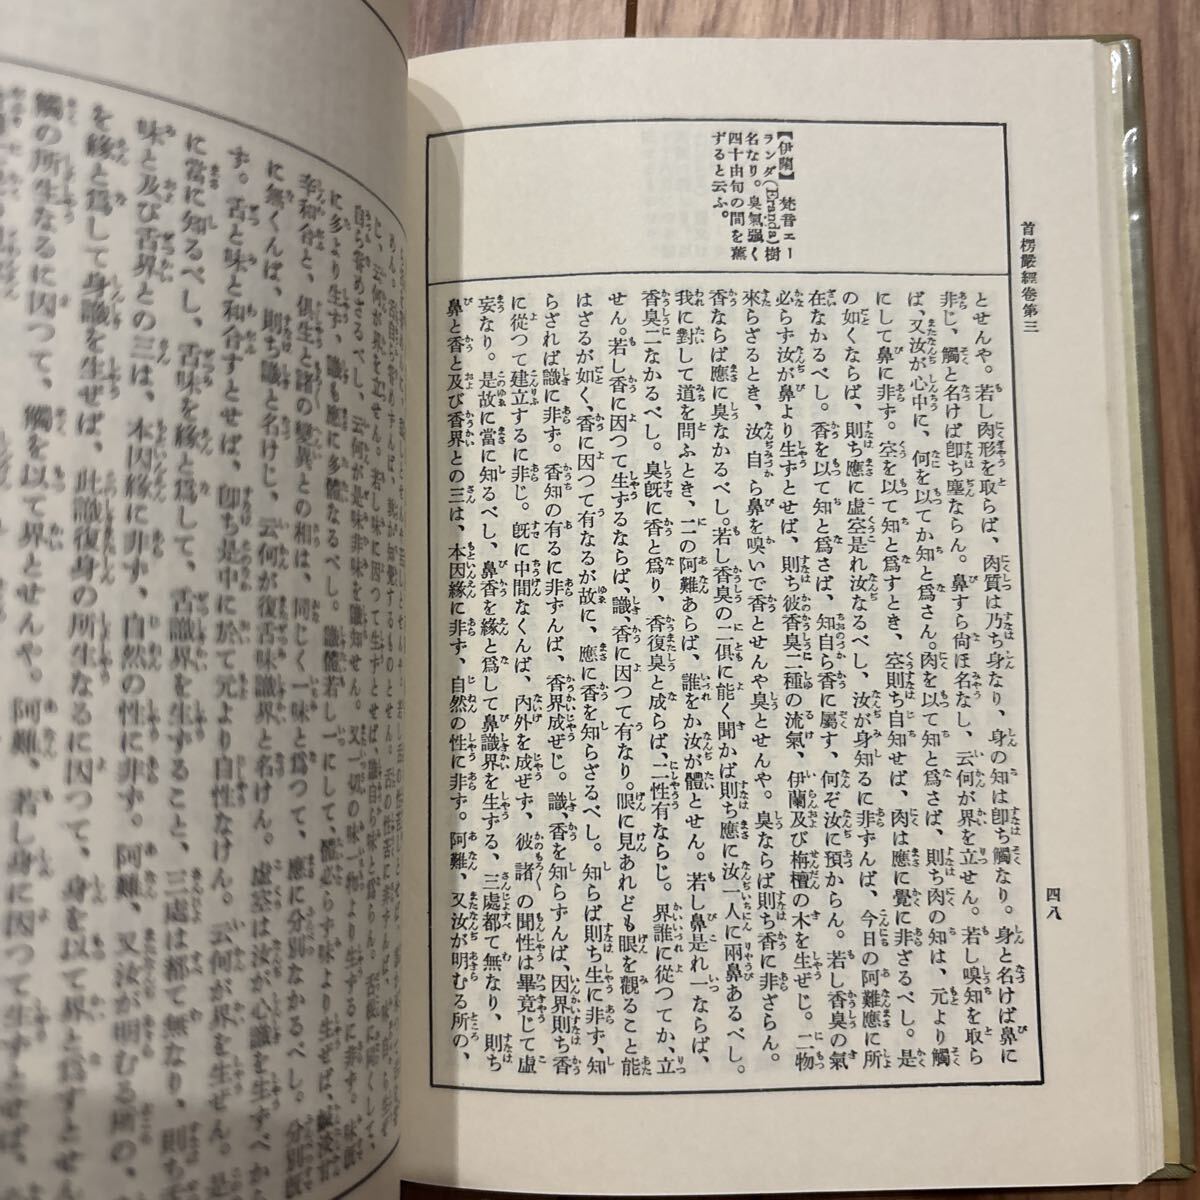 首楞嚴經卷第三
四八
【伊蘭】 梵音エー
ランダ(Eranda)樹
名なり。臭氣强く
四十由旬の間を薰
ずると云ふ。
とせんや。若し肉形を取らば、肉質は乃ち身なり、身の知は卽ち觸なり。身と名けば鼻に
非じ、觸と名けば卽ち塵ならん。鼻すら尙ほ名なし、云何が界を立せん。若し嗅知を取ら
ば、又汝が心中に、何を以てか知と爲さん。肉を以て知と爲さば、則ち肉の知は、元より觸
にして鼻に非ず。空を以て知と爲すとき、空則ち自知せば、肉は應に覺に非ざるべし。是
の如くならば、則ち應に虛空是れ汝なるべし、汝が身知るに非ずんば、今日の阿難應に所
在なかるべし。香を以て知と爲さば、知自ら香に屬す、何ぞ汝に預からん。若し香臭の氣
必らず汝が鼻より生ずとせば、則ち彼香臭二種の流氣、伊蘭及び栴檀の木を生ぜじ。二物
來らざるとき、汝 自ら鼻を嗅いで香とせんや臭とせんや。臭ならば則ち香に非ざらん。
香ならば應に臭なかるべし。若し香臭の二俱に能く聞かば則ち應に汝一人に兩鼻あるべし。
我に對して道を問ふとき、二の阿難あらば、誰をか汝が體とせん。若し鼻是れ一ならば、
香臭二なかるべし。臭旣に香と爲り、香復臭と成らば、二性有ならじ。界誰に從つてか、立
せん。若し香に因つて生ずるならば、識、香に因つて有なり。眼に見あれども眼を觀ること能
はざるが如く、香に因つて有なるが故に、應に香を知らざるべし。知らば則ち生に非ず、知
らざれば識に非ず。香知の有るに非ずんば、香界成ぜじ。識、香を知らずんば、因界則ち香
に從つて建立するに非じ。旣に中間なくんば、內外を成ぜず、彼 諸の聞性は畢竟じて虛
妄なり。是故に當に知るべし、鼻香を緣と爲して鼻識界を生ずる、三處都て無なり、則ち
鼻と香と及び香界との三は、本因緣に非ず、自然の性に非ず。阿難、又汝が明むる所の、
す。舌と味と和合すとせば、卽ち是中に於て元より自性なけん。云何が界を生ぜん。是
に當に知るべし、舌味を緣と爲して、舌識界を生ずること、三處は都て無なり、則ち
味と及び舌界との三は、本因緣に非ず、自然の性に非ず。阿難、又汝が明むる所の、
を緣と爲して身識を生ぜば、此識復身の所生なるに因つて、身を以て界と爲すとせん
觸の所生なるに因つて、觸を以て界とせんや。阿難、若し身に因つて生ずとせば、